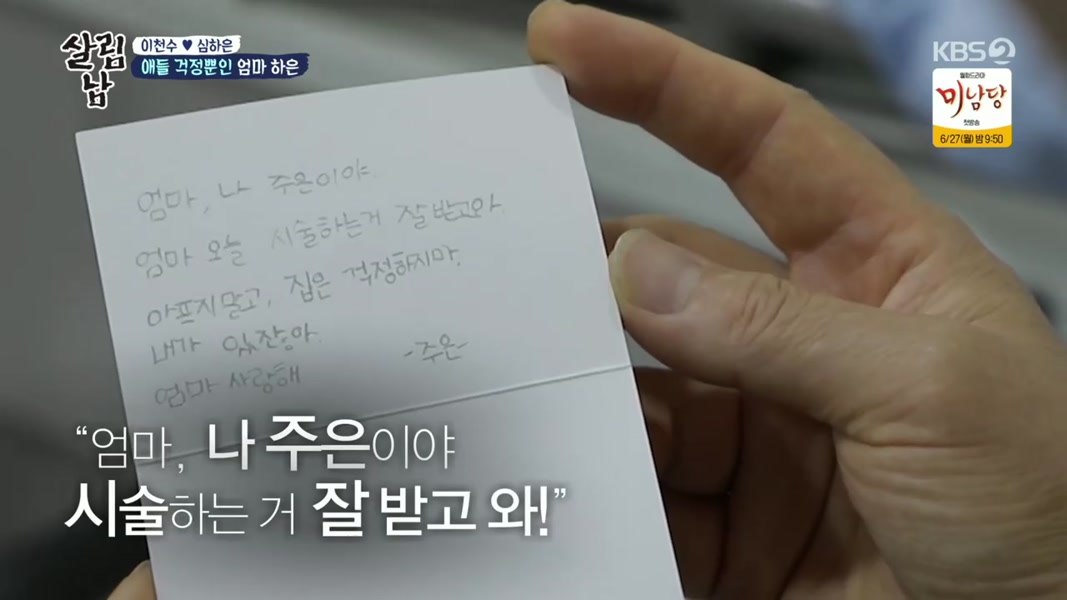 살림남
이천수 ♥ 심하은
애들 걱정뿐인 엄마 하은
KBS2
월화드라마
미남당
첫방송
6/27(월) 밤 9:50
엄마, 나 주은이야.
엄마 오늘 시술하는거 잘 받고와.
아프지 말고, 집은 걱정하지마.
내가 있잖아.
-주은-
엄마 사랑해
“엄마, 나 주은이야
시술하는 거 잘 받고 와!”